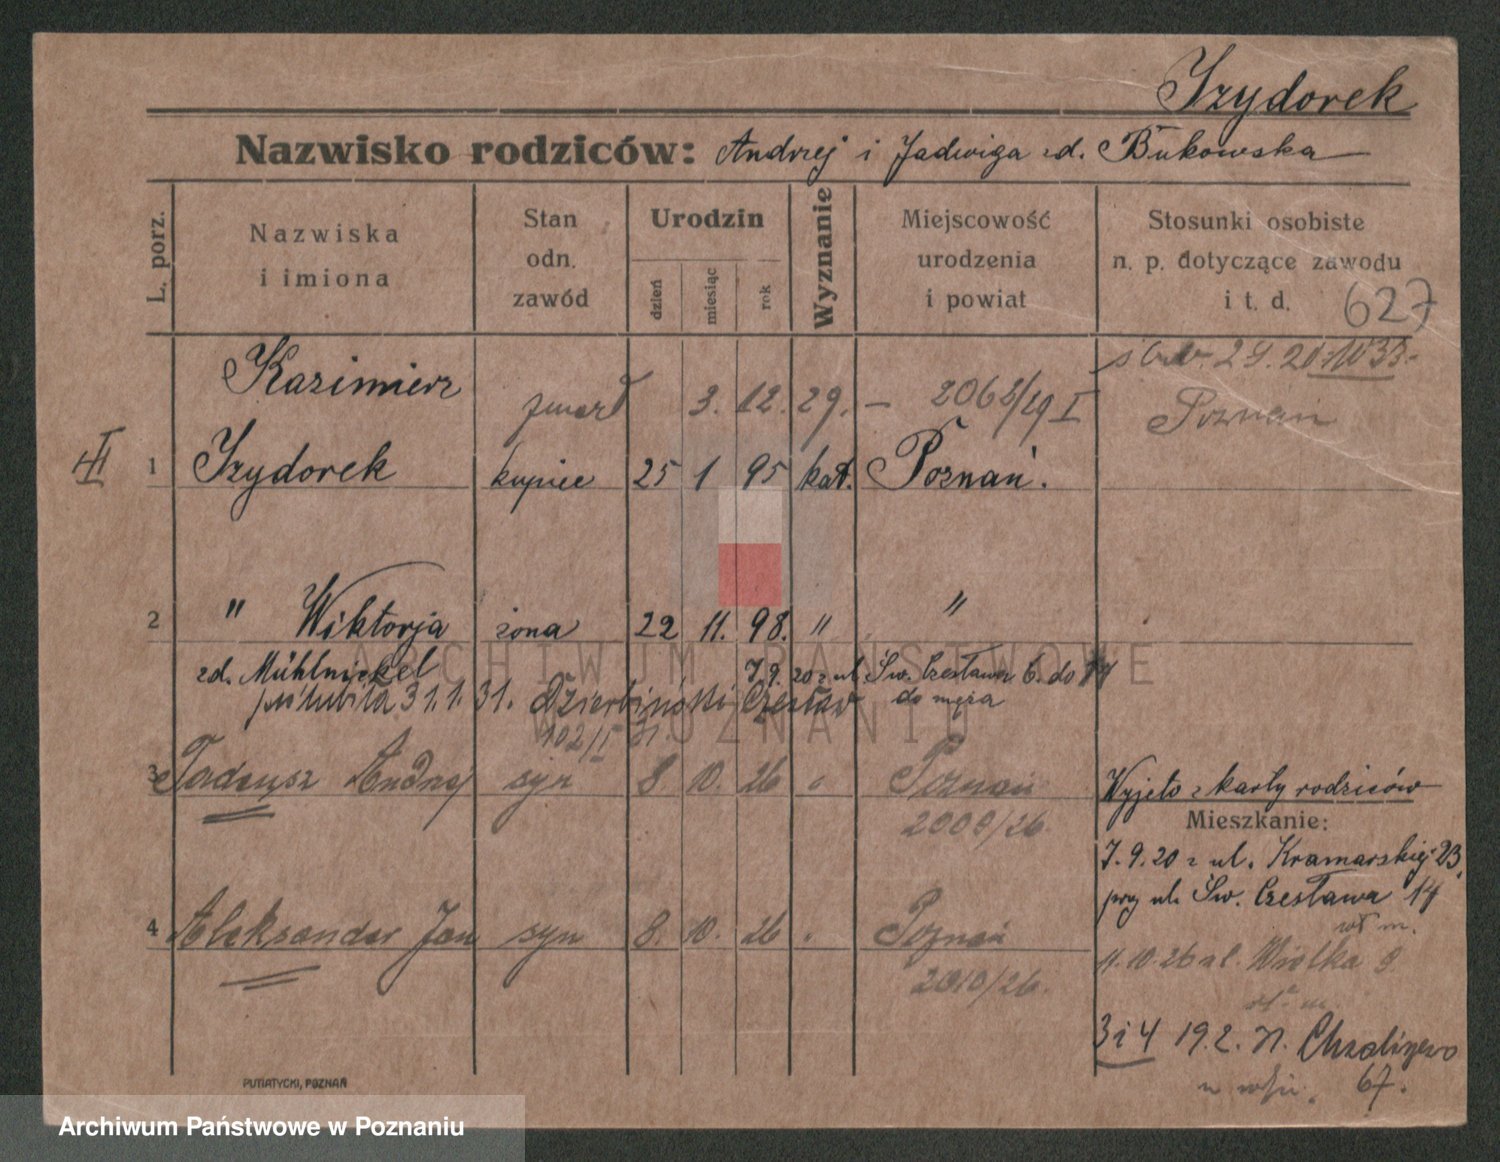 Izydorek
Nazwisko rodziców: Andrzej i Jadwiga zd. Bukowska
L. porz.
Nazwiska i imiona
Stan odn. zawód
Urodzin
dzień
miesiąc
rok
Wyznanie
Miejscowość urodzenia i powiat
Stosunki osobiste n. p. dotyczące zawodu i t. d.
627
29.
Poznań
Kazimierz
zmarł 3. 12. 29. — 2063/29 I
III
1 Izydorek kupiec 25 1 95 kat. Poznań.
2 " Wiktorja żona 22 11. 98. " "
zd. Mühlnickel 7.9.20 z ul. Św. Czesława 6. do 14
poślubiła 31.1.31. Czesław do męża
3 Tadeusz Andrzej syn 8. 10. 26 " Poznań
2000/26
Wyjęto z karty rodziców
Mieszkanie:
7.9.20 z ul. Kramarskiej 23,
przy ul. Św. Czesława 14
4 Aleksander Jan syn 8. 10. 26 " Poznań
2010/26.
11.10.26 ul. Wielka 9
3 i 4 19.2.
67.
PUTIATYCKI, POZNAŃ
ARCHIWUM PAŃSTWOWE
W POZNANIU
Archiwum Państwowe w Poznaniu